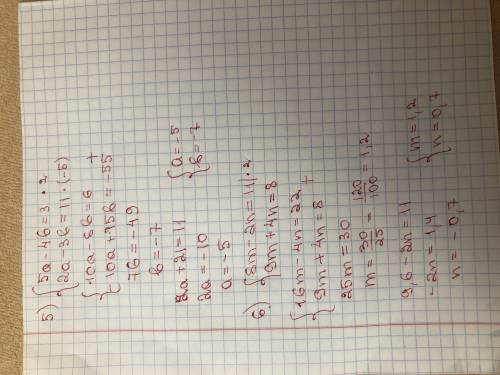 5) { 5a - 4b = 3 · 2
2a - 3b = 11 · (-5)
{ 10a - 8b = 6 +
-10a + 15b = -55
7b = -49
b = -7
2a + 21 = 11
2a = -10
a = -5
{ a = -5
b = -7
6) { 8m - 2n = 11 | · 2
9m + 4n = 8
{ 16m - 4n = 22 +
9m + 4n = 8
25m = 30
m = 30/25 = 120/100 = 1,2
9,6 - 2n = 11
-2n = 1,4
n = -0,7
{ m = 1,2
n = 0,7